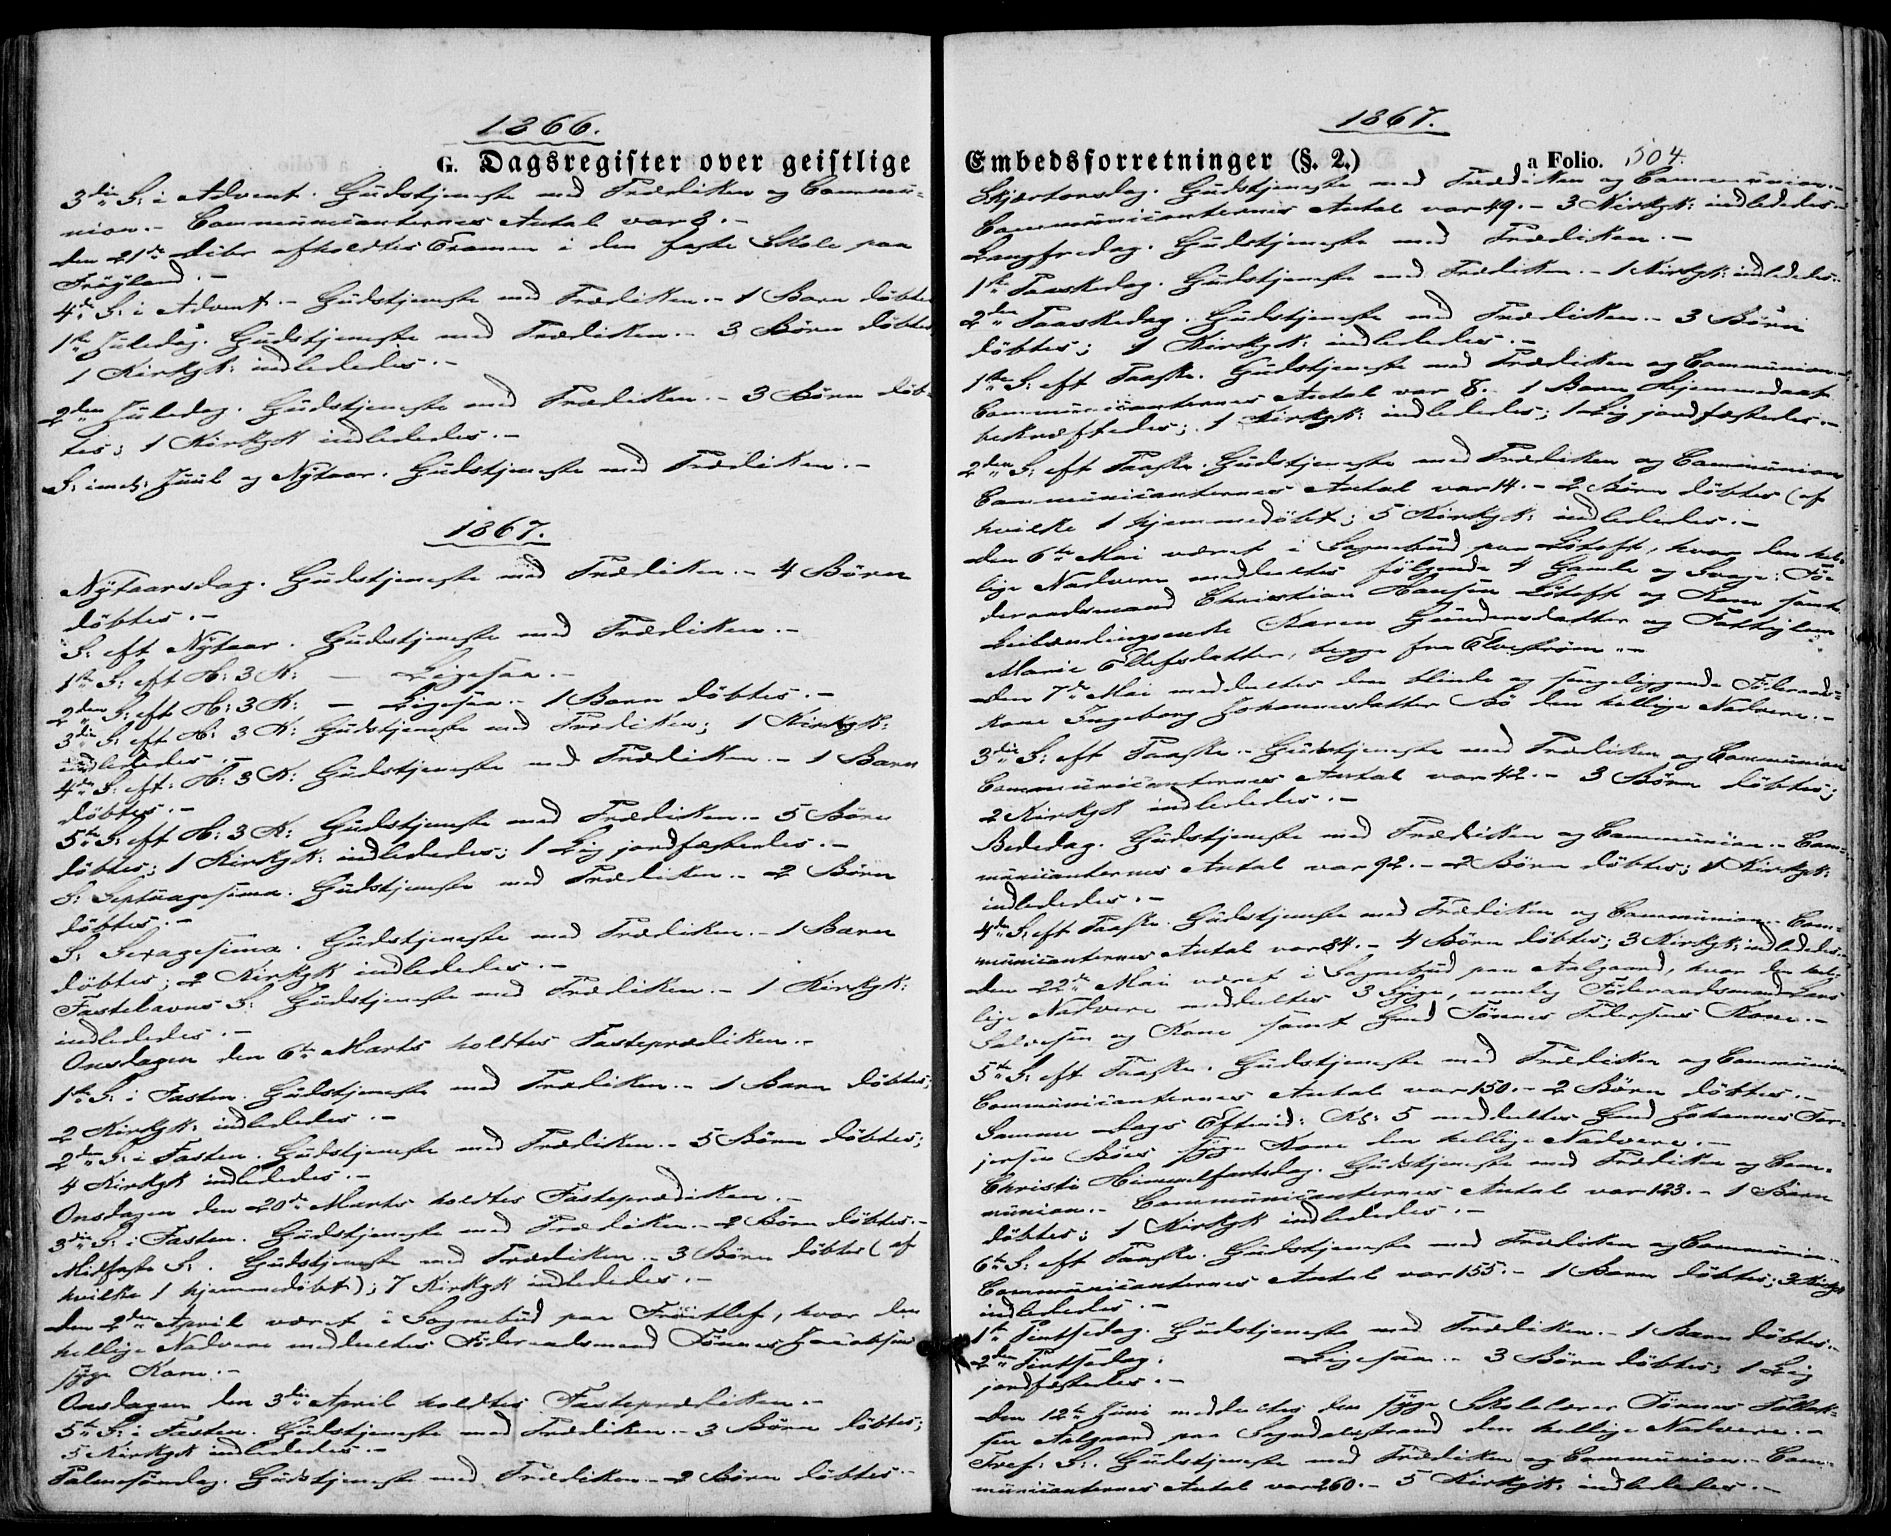 1866.
G. Dagsregister over geistlige
3die S: i Advent. Gudstjeneste med Prædiken og Commu-
nion. - Communicanternes Antal var 3. -
Den 21de Dcbr afholdtes Examen i den faste Skole paa
Fröyland. -
4de S: i Advent. - Gudstjeneste med Prædiken. - 1 Barn döbtes
1ste Juledag. Gudstjeneste med Prædiken. - 3 Börn döbtes
1 Kirkgk: indlededes. -
2den Juledag. Gudstjeneste med Prædiken. - 3 Börn döb-
tes; 1 Kirkgk indlededes. -
S: imel: Juul og Nytaar. Gudstjeneste med Prædiken. -
1867.
Nytaarsdag. Gudstjeneste med Prædiken. - 4 Börn
döbtes. -
S: eft Nytaar. Gudstjeneste med Prædiken. -
1ste S: eft H: 3 K: - Ligesaa. -
2den S: eft H: 3 K: - Ligesaa. - 1 Barn döbtes. -
3die S: eft H: 3 K: Gudstjeneste med Prædiken; 1 Kirkgk:
indlededes. -
4de S: eft: H: 3 K: Gudstjeneste med Prædiken. - 1 Barn
döbtes. -
5te S: eft H: 3 K: Gudstjeneste med Prædiken. - 5 Börn
döbtes; 1 Kirkgk: indlededes; 1 Lig jordfæstedes. -
S: Septuagesima. Gudstjeneste med Prædiken. - 2 Börn
döbtes. -
S. Sexagesima. Gudstjeneste med Prædiken. - 1 Barn
döbtes; 2 Kirkgk indlededes. -
Fastelavns S: Gudstjeneste med Prædiken. - 1 Kirkgk:
indlededes. -
Onsdagen den 6te Marts holdtes Fasteprædiken. -
1ste S: i Fasten. Gudstjeneste med Prædiken. - 1 Barn döbtes;
2 Kirkgk: indlededes. -
2den S: i Fasten. Gudstjeneste med Prædiken. - 5 Börn döbtes;
4 Kirkgk indlededes. -
Onsdagen den 20de Marts holdtes Fasteprædiken. -
3die S: i Fasten. Gudstjeneste med Prædiken. - 2 Börn döbtes. -
Midfaste S:. Gudstjeneste med Prædiken. - 3 Börn döbtes (af
hvilke 1 hjemmedöbt); 7 Kirkgk indlededes. -
Den 2den April været i Sognebud paa Fröitlef, hvor den
hellige Nadvere meddeeltes Föderaadsmand Tönnes Jacobsens
syge Kone. -
Onsdagen den 3die April holdtes Fasteprædiken. -
5te S: i Fasten. Gudstjeneste med Prædiken. - 3 Börn döbtes;
5 Kirkgk indlededes. -
Palmesöndag. Gudstjeneste med Prædiken. - 2 Börn döbtes. -
1867.
Embedsforretninger (§. 2.) a Folio. 504.
Skjærtorsdag. Gudstjeneste med Prædiken og Communion. -
Communicanternes Antal var 49. - 3 Kirkgk: indlededes. -
Langfredag. Gudstjeneste med Prædiken. -
1ste Paaskedag. Gudstjeneste med Prædiken. - 1 Kirkgk: indlededes. -
2den Paaskedag. Gudstjeneste med Prædiken. - 3 Börn
döbtes; 1 Kirkgk: indlededes. -
1ste S: eft Paaske. Gudstjeneste med Prædiken og Communion. -
Communicanternes Antal var 8. - 1 Barns Hjemmedaab
bekræftedes; 1 Kirkgk: indlededes; 1 Lig jordfæstedes. -
2den S: eft Paaske. Gudstjeneste med Prædiken og Communion
Communicanternes Antal var 14. - 2 Börn döbtes (af
hvilke 1 hjemmedöbt; 5 Kirkgk: indlededes. -
Den 6te Mai været i Sognebud paa Lötoft, hvor den hel-
lige Nadvere meddeeltes fölgende 4 Gamle og Svage: Fö-
deraadsmand Christian Hansen Lötoft og Kone samt
Leilændingsenke Karen Gundersdatter og Fattiglem
Marie Ellefsdatter, begge fra Elvestrøm. -
Den 7de Mai meddeeltes den blinde og sengeliggende Föderaads-
kone Ingeborg Johannesdatter Bö den hellige Nadvere. -
3die S: eft Paaske. - Gudstjeneste med Prædiken og Communion
Communicanternes Antal var 42. - 3 Börn döbtes;
2 Kirkgk indlededes. -
Bededag. Gudstjeneste med Prædiken og Communion. - Com-
municanternes Antal var 92. - 2 Börn döbtes; 1 Kirkgk:
indlededes. -
4de S: eft Paaske. Gudstjeneste med Prædiken og Communion. - Com-
municanternes Antal var 84. - 4 Börn döbtes; 3 Kirkgk: indlededes. -
Den 22de Mai været i Sognebud paa Aalgaard, hvor den hel-
lige Nadvere meddeeltes 3 Syge, nemlig Föderaadsmand Lars
Salvesen og Kone samt Gmd Tönnes Pedersens Kone. -
5te S: eft Paaske. Gudstjeneste med Prædiken og Communion
Communicanternes Antal var 150. - 2 Börn döbtes. -
Samme Dags Eftmid: Kl: 5 meddeeltes Gmd Johannes Tor-
jersen Böes syge Kone den hellige Nadvere. -
Christi Himmelfartsdag. Gudstjeneste med Prædiken og Com-
munion. - Communicanternes Antal var 123. - 1 Barn
döbtes; 1 Kirkgk indlededes. -
6te S: eft Paaske. Gudstjeneste med Prædiken og Communion. -
Communicanternes Antal var 155. - 1 Barn döbtes; 3 Kirkgk
indlededes. -
1ste Pintsedag. Gudstjeneste med Prædiken. - 1 Barn döbtes. -
2den Pintsedag. Ligesaa. - 3 Börn döbtes; 1 Lig
jordfæstedes. -
Den 12te Juni meddeeltes den syge Skolelærer Tönnes Tollak-
sen Aalgaard paa Sogndalsstrand den hellige Nadvere. -
Tref: S:. Gudstjeneste med Prædiken og Communion. - Com-
municanternes Antal var 260. - 5 Kirkgk: indlededes. -